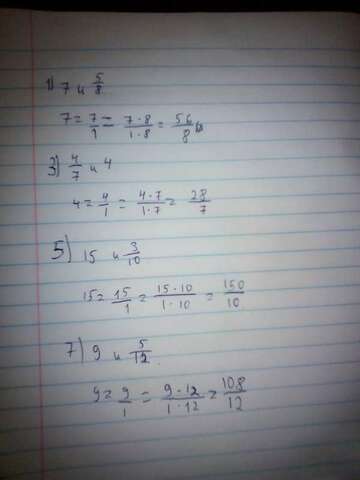 1) 7 и 5/8
7 = 7/1 = 7·8/1·8 = 56/8
3) 4/7 и 4
4 = 4/1 = 4·7/1·7 = 28/7
5) 15 и 3/10
15 = 15/1 = 15·10/1·10 = 150/10
7) 9 и 5/12
9 = 9/1 = 9·12/1·12 = 108/12